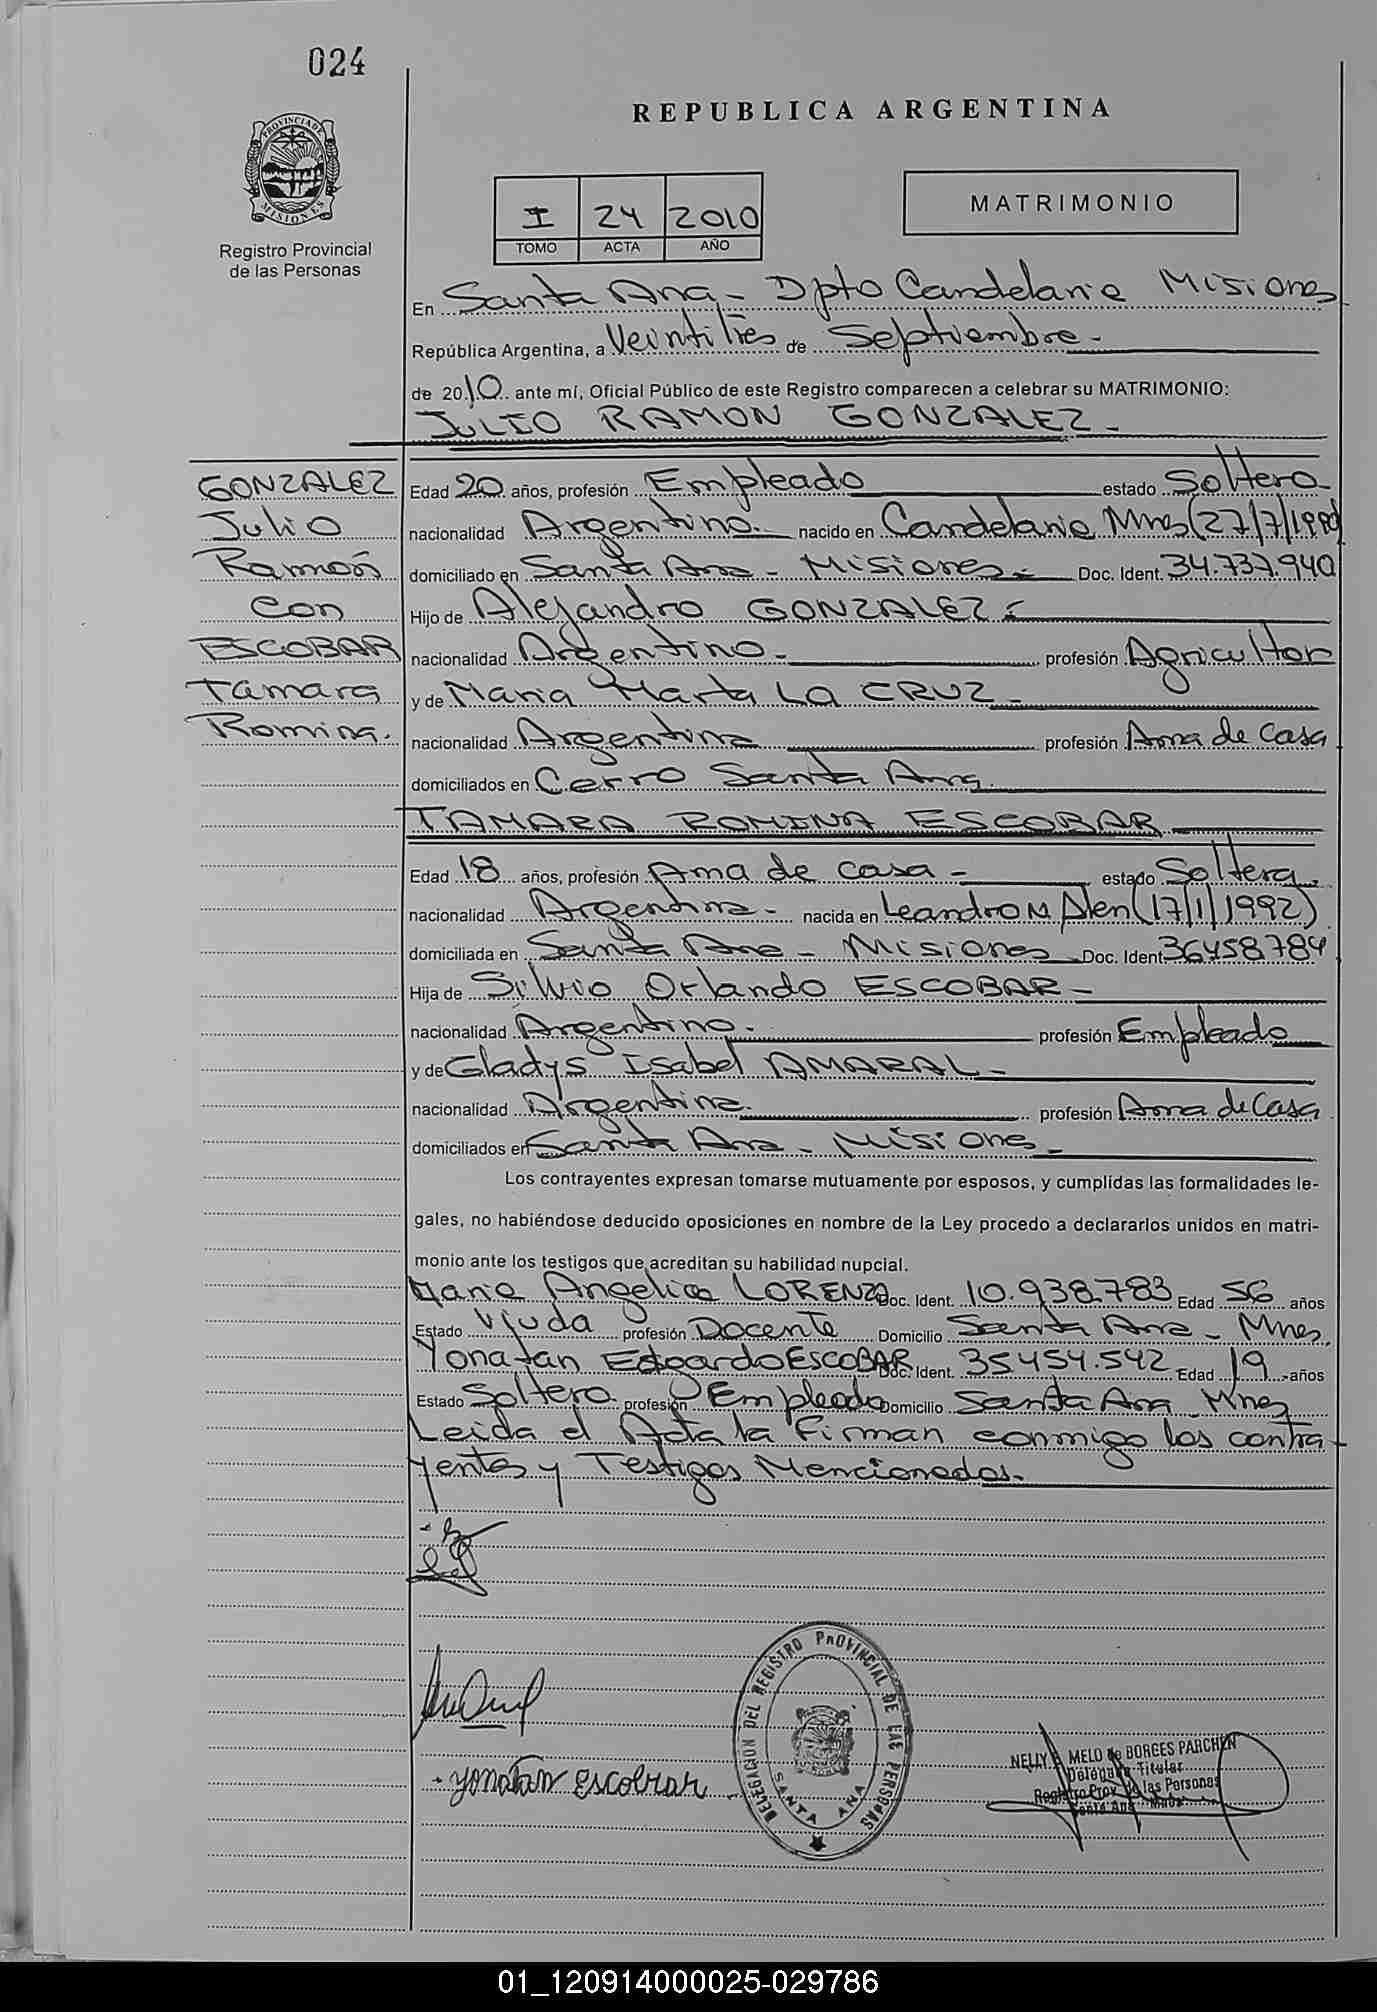 024
REPUBLICA ARGENTINA
PROVINCIA DE MISIONES
Registro Provincial
de las Personas
I 24 2010
TOMO ACTA AÑO
MATRIMONIO
En Santa Ana - Dpto Candelaria Misiones
República Argentina, a Veintitres de Septiembre -
de 2010 ante mí, Oficial Público de este Registro comparecen a celebrar su MATRIMONIO:
JULIO RAMON GONZALEZ -
GONZALEZ
Julio
Ramón
Con
ESCOBAR
Tamara
Romina.
Edad 20 años, profesión Empleado estado Soltero
nacionalidad Argentino. nacido en Candelaria Mnes (27/7/1989)
domiciliado en Santa Ana - Misiones - Doc. Ident. 34.737.940
Hijo de Alejandro GONZALEZ -
nacionalidad Argentino - profesión Agricultor
y de Maria Marta LA CRUZ -
nacionalidad Argentina profesión Ama de Casa
domiciliados en Cerro Santa Ana
TAMARA ROMINA ESCOBAR
Edad 18 años, profesión Ama de casa - estado Soltera
nacionalidad Argentina - nacida en Leandro N Alen (17/1/1992)
domiciliada en Santa Ana - Misiones Doc. Ident. 36458784
Hija de Silvio Orlando ESCOBAR -
nacionalidad Argentino. profesión Empleado
y de Gladys Isabel AMARAL -
nacionalidad Argentina. profesión Ama de Casa
domiciliados en Santa Ana - Misiones -
Los contrayentes expresan tomarse mutuamente por esposos, y cumplidas las formalidades le-
gales, no habiéndose deducido oposiciones en nombre de la Ley procedo a declararlos unidos en matri-
monio ante los testigos que acreditan su habilidad nupcial.
Maria Angelica LORENZO Doc. Ident. 10.938.783 Edad 56 años
Estado Viuda profesión Docente Domicilio Santa Ana - Mnes
Yonatan Edgardo ESCOBAR Doc. Ident. 35454.542 Edad 19 años
Estado Soltero profesión Empleado Domicilio Santa Ana Mnes
Leida el Acta la Firman conmigo los contra-
yentes y Testigos Mencionados.
Yonatan Escobar
DELEGACION DEL REGISTRO PROVINCIAL DE LAS PERSONAS
SANTA ANA
NELLY MELO de BORGES PARCHEN
Delegada Titular
Registro Prov. de las Personas
Santa Ana Mnes
01_120914000025-029786